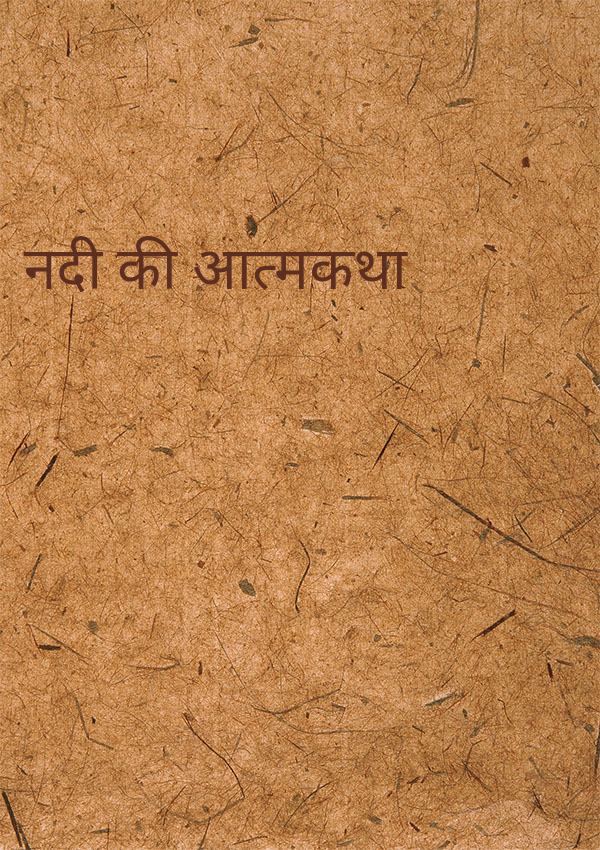 नदी की आत्मकथा